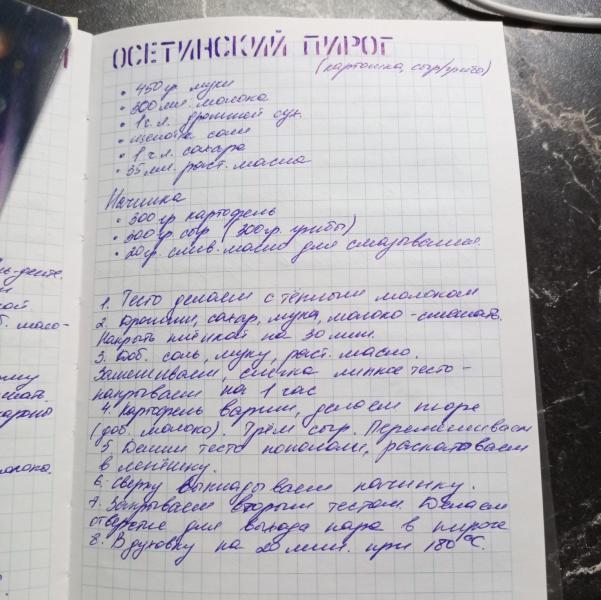 ОСЕТИНСКИЙ ПИРОГ
(картошка, сыр/грибы)
• 450 гр. муки
• 300 мл. молока
• 1 ч.л. дрожжей сух.
• щепотка соли
• 1 ч.л. сахара
• 35 мл. раст. масла
Начинка
• 300 гр картофель
• 300 гр. сыр (300 гр. грибы)
• 20 гр. слив. масло для смазывания.
1. Тесто делаем с тёплым молоком
2. Дрожжи, сахар, мука, молоко - смешать.
Накрыть плёнкой на 30 мин.
3. Доб. соль, муку, раст. масло.
Замешиваем, слегка липкое тесто -
накрываем на 1 час
4. Картофель варим, делаем пюре
(доб. молоко). Трём сыр. Перемешиваем
5. Делим тесто пополам, раскатываем
в лепёшку.
6. Сверху выкладываем начинку.
7. Закрываем вторым тестом. Делаем
отверстие для выхода пара в пироге
8. В духовку на 20 мин. при 180°С.
ь-дете.
ой
б. масо-
ому
шат.
молока.